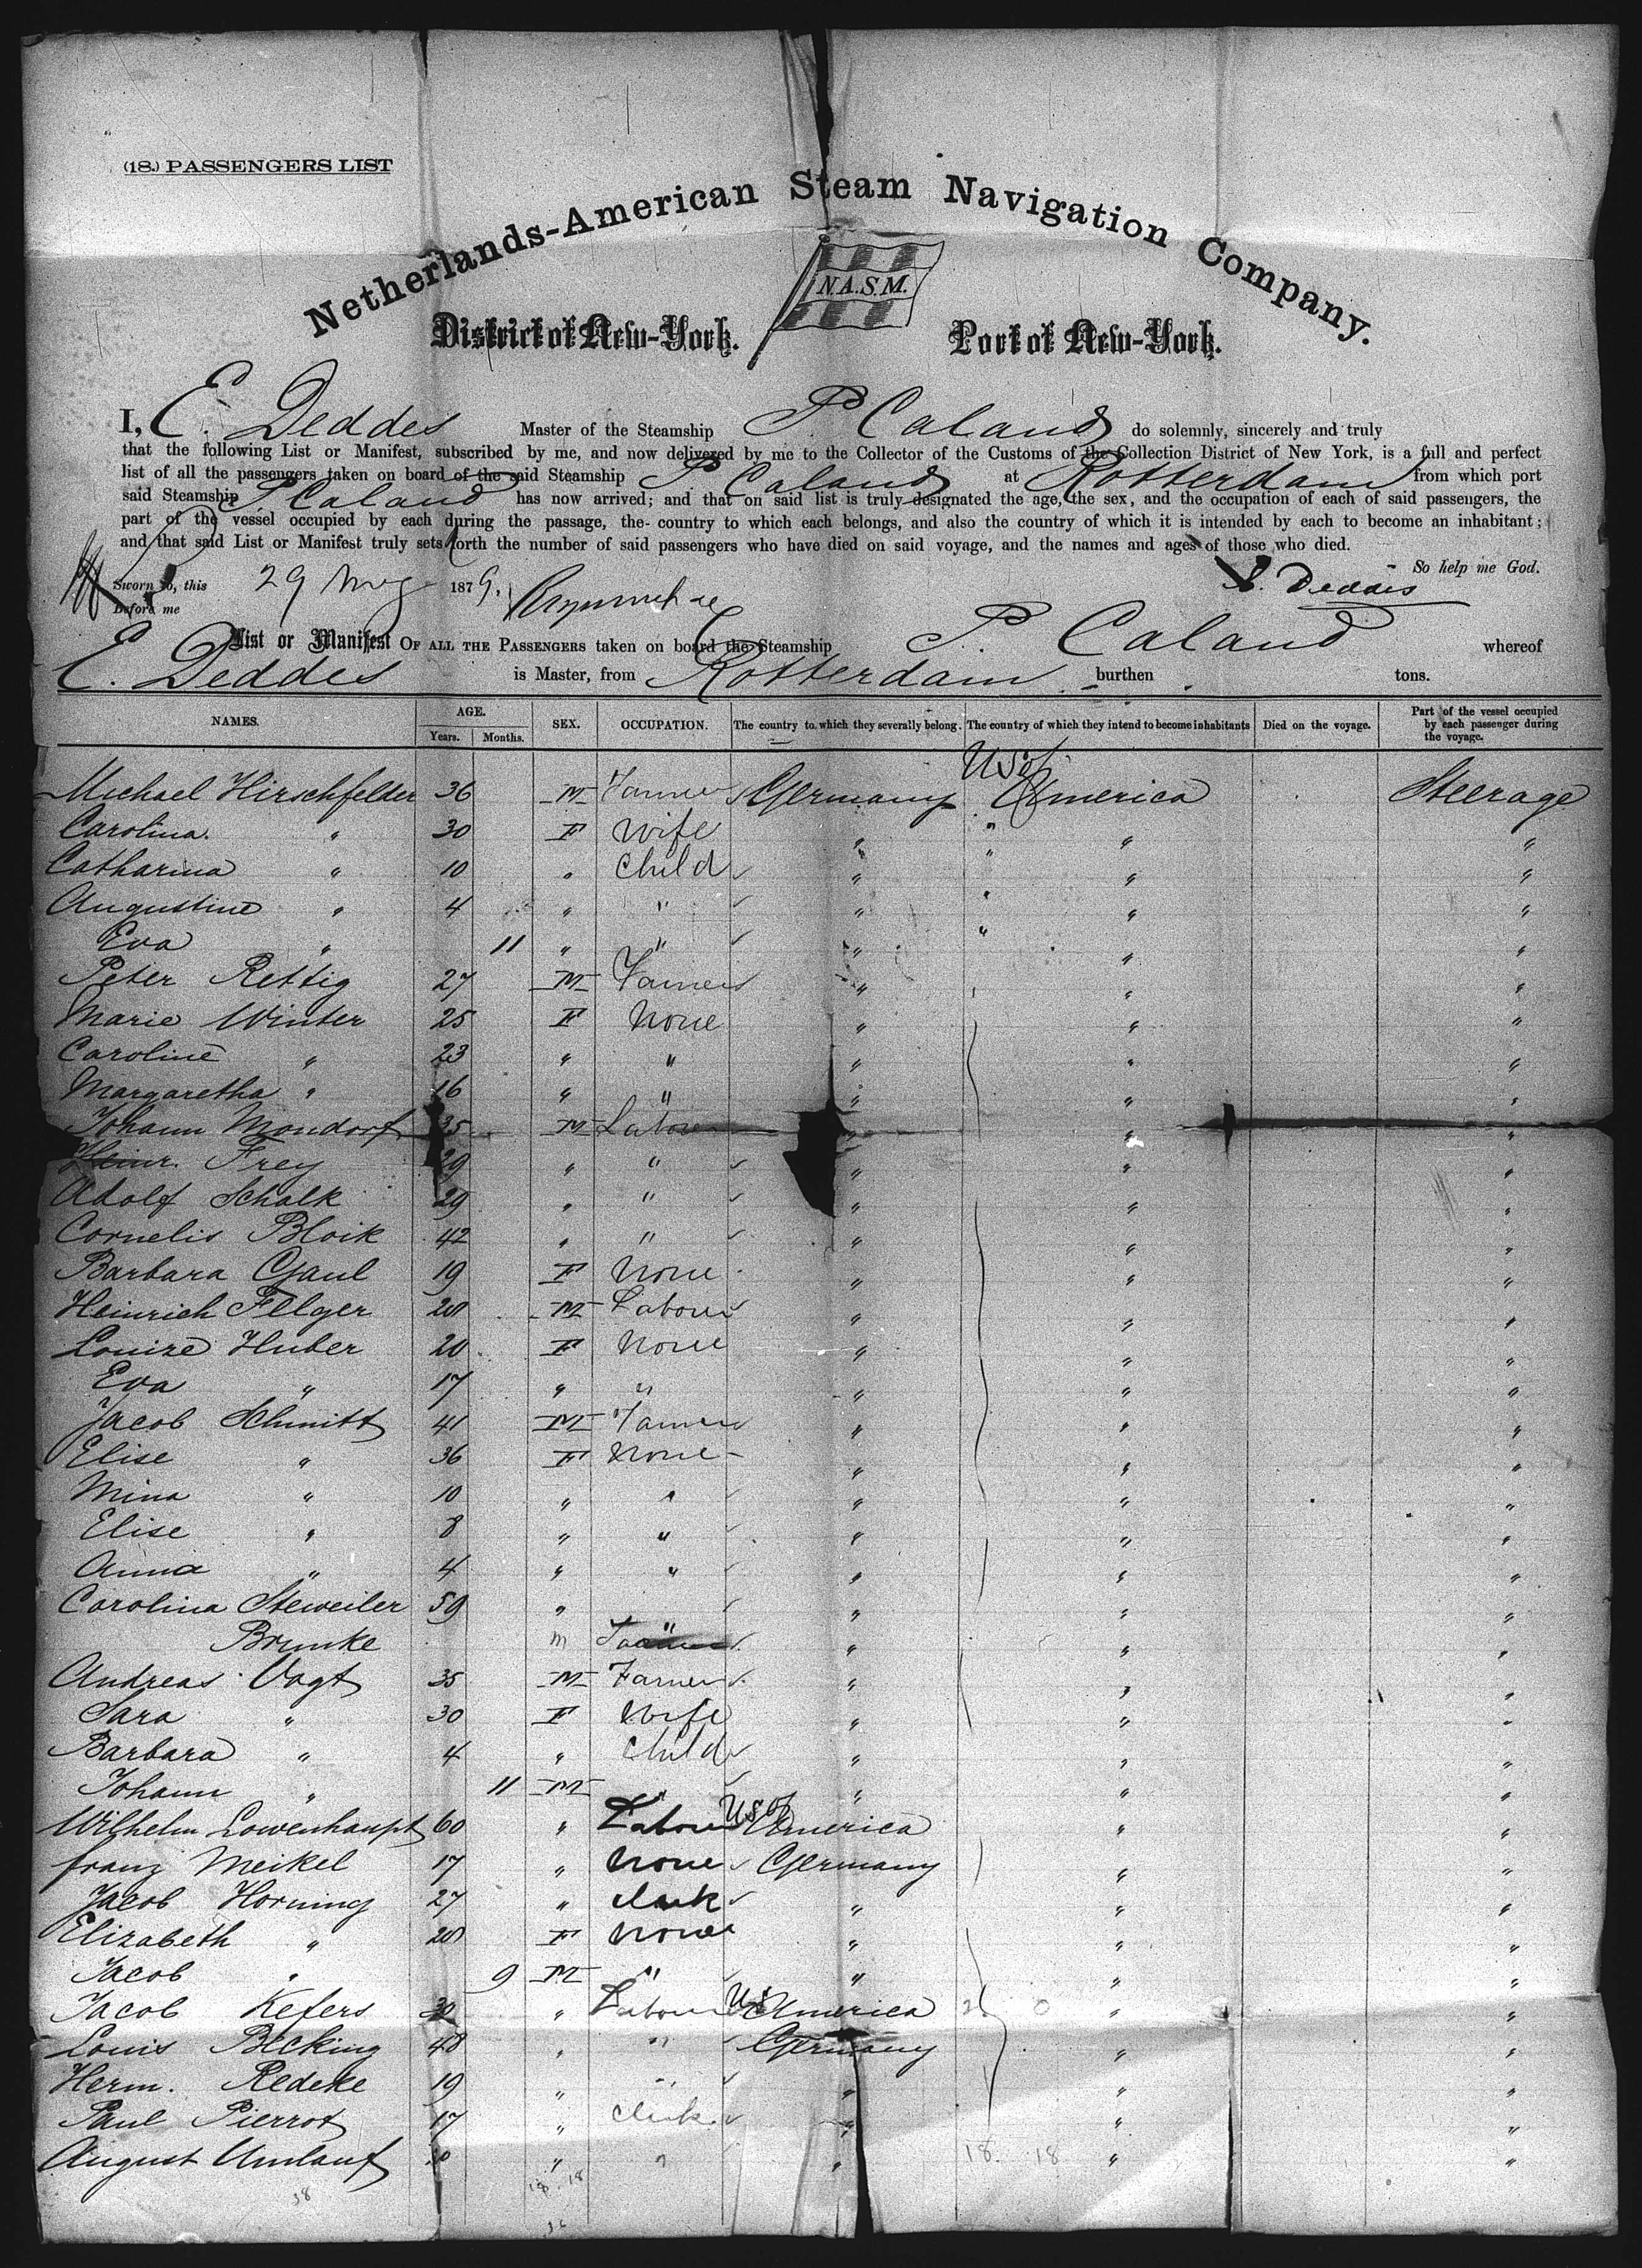 (18.) PASSENGERS LIST
Netherlands-American Steam Navigation Company.
N.A.S.M.
District of New-York. Port of New-York.
I, E. Deddes Master of the Steamship P Caland do solemnly, sincerely and truly
that the following List or Manifest, subscribed by me, and now delivered by me to the Collector of the Customs of the Collection District of New York, is a full and perfect
list of all the passengers taken on board of the said Steamship P. Caland at Rotterdam from which port
said Steamship P Caland has now arrived; and that on said list is truly designated the age, the sex, and the occupation of each of said passengers, the
part of the vessel occupied by each during the passage, the country to which each belongs, and also the country of which it is intended by each to become an inhabitant;
and that said List or Manifest truly sets forth the number of said passengers who have died on said voyage, and the names and ages of those who died.
So help me God.
Sworn to, this 29 1879. E. Deddes
Before me
List or Manifest OF ALL THE PASSENGERS taken on board the Steamship P. Caland whereof
E. Deddes is Master, from Rotterdam burthen tons.
NAMES. AGE. SEX. OCCUPATION. The country to which they severally belong. The country of which they intend to become inhabitants Died on the voyage. Part of the vessel occupied by each passenger during the voyage.
Years. Months.
US of
Michael Hirschfelder 36 M Farmer Germany America Steerage
Carolina " 30 F Wife " " " "
Catharina " 10 " Child " " " "
Augustine " 4 " " " " " "
Eva " 11 " " " " " "
Peter Rettig 27 M Farmer " " "
Marie Winter 25 F None " " "
Caroline " 23 " " " " "
Margaretha " 16 " " " " "
Johann Mondorf 35 M Labour " " "
Heinr. Frey 29 " " " " "
Adolf Schalk 29 " " " " "
Cornelis Bloik 42 " " " " "
Barbara Gaul 19 F None " " "
Heinrich Felger 28 M Labour " " "
Louise Huber 20 F None " " "
Eva " 17 " " " " "
Jacob Schmitt 41 M Farmer " " "
Elise " 36 F None " " "
Mina " 10 " " " " "
Elise " 8 " " " " "
Anna " 4 " " " " "
Carolina Steweiler 59 " " " "
Brunke M " " " "
Andreas Vogt 35 M Farmer " " "
Sara " 30 F Wife " " "
Barbara " 4 " Child " " "
Johann " 11 M " " " "
Wilhelm Lowenhaupt 60 " Labour US of America " "
Franz Meikel 17 " None Germany " "
Jacob Horning 27 " clerk " " "
Elizabeth " 28 F None " " "
Jacob " 9 M " " " "
Jacob Kefers 30 " Labour US America " "
Louis Becking 48 " " Germany " "
Herm. Redeke 19 " " " " "
Paul Pierrot 17 " Clerk " " "
August Umlauf " " " " "
18 18